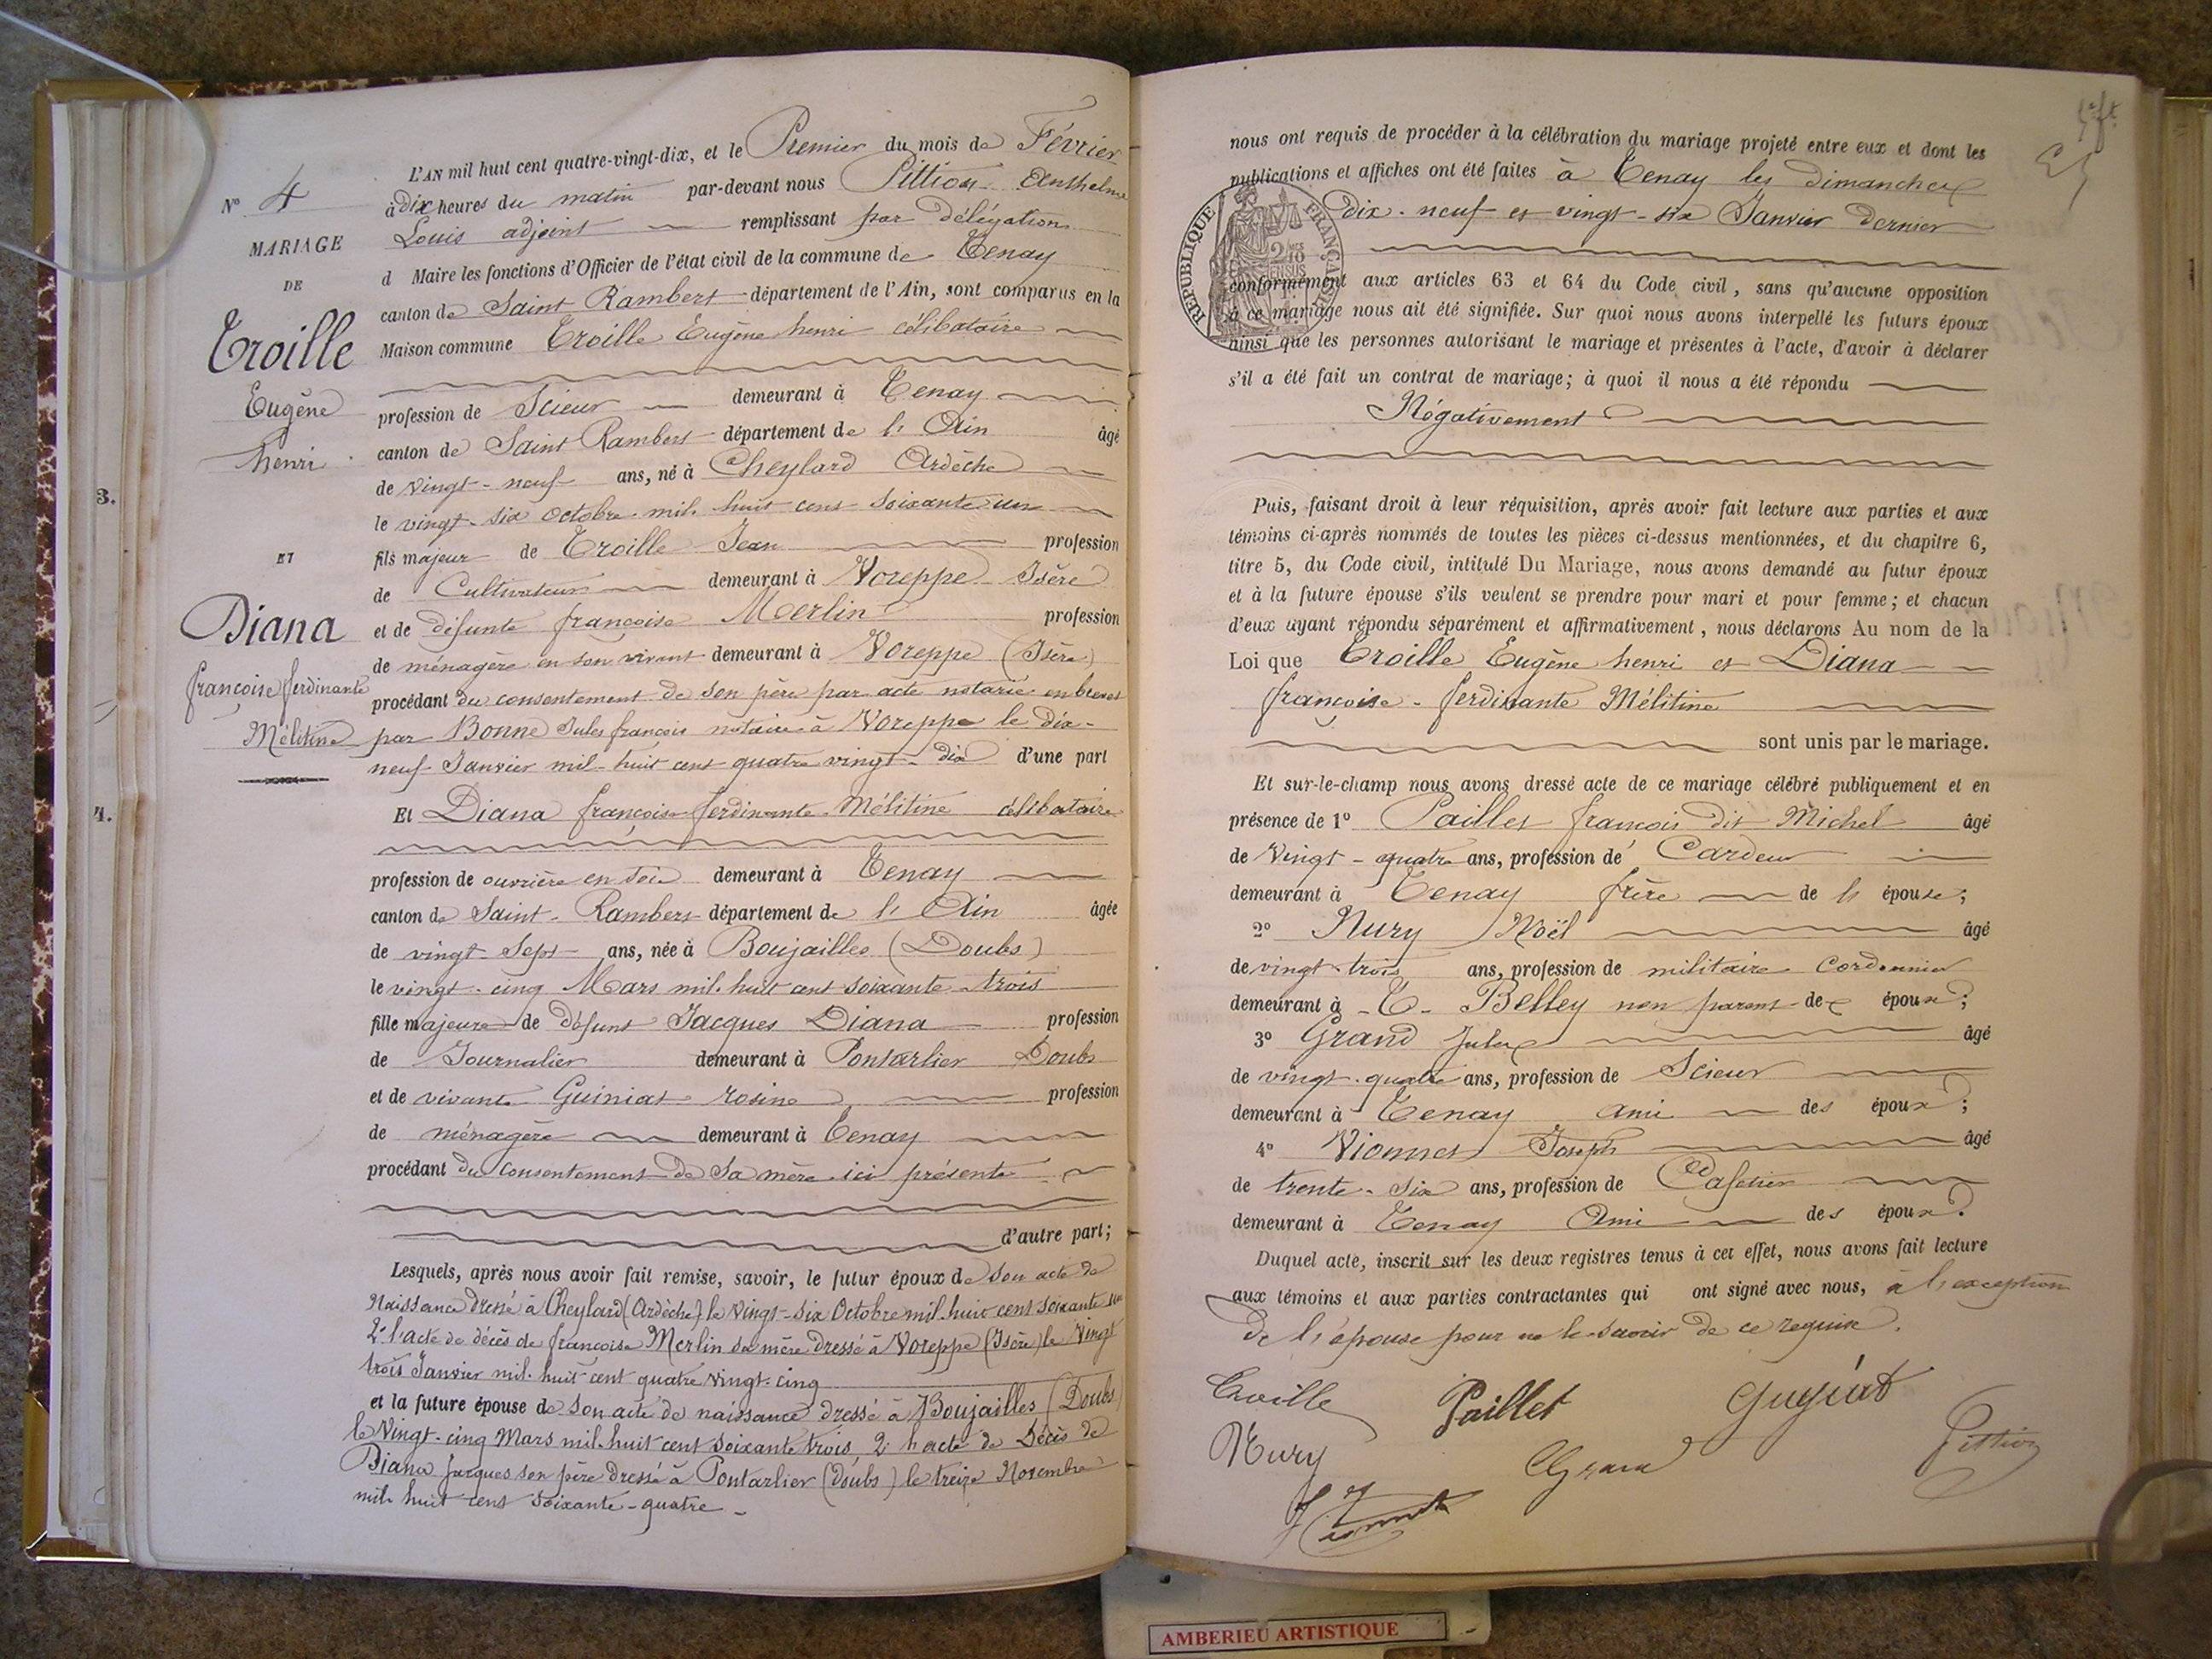 N° 4
MARIAGE
DE
Troille
Eugène
henri
ET
Diana
françoise ferdinante
Mélitine
3.
4.
L'AN mil huit cent quatre-vingt-dix, et le Premier du mois de Février
à dix heures du matin par-devant nous Pittion Anthelme
Louis adjoint remplissant par délégation
d Maire les fonctions d'Officier de l'état civil de la commune de Tenay
canton de Saint Rambert département de l'Ain, sont comparus en la
Maison commune Troille Eugène henri célibataire
profession de Scieur demeurant à Tenay
canton de Saint Rambert département de l'Ain âgé
de vingt-neuf ans, né à Cheylard Ardèche
le vingt-six octobre mil huit cent soixante un
fils majeur de Troille Jean profession
de Cultivateur demeurant à Voreppe Isère
et de défunte françoise Merlin profession
de ménagère en son vivant demeurant à Voreppe (Isère)
procédant du consentement de son père par acte notarié en brevet
par Bonne Jules françois notaire à Voreppe le dix-
neuf Janvier mil-huit cent quatre vingt-dix d'une part
Et Diana françoise ferdinante Mélitine célibataire
profession de ouvrière en soie demeurant à Tenay
canton de Saint-Rambert département de l'Ain âgée
de vingt Sept ans, née à Boujailles (Doubs)
le vingt-cinq Mars mil huit cent soixante-trois
fille majeure de défunt Jacques Diana profession
de Journalier demeurant à Pontarlier Doubs
et de vivante Guiniat rosine profession
de ménagère demeurant à Tenay
procédant du Consentement de Sa mère ici présente
d'autre part;
Lesquels, après nous avoir fait remise, savoir, le futur époux de Son acte de
Naissance dressé à Cheylard (Ardèche) le Vingt-six Octobre mil huit cent soixante un
2° l'acte de décès de françoise Merlin sa mère dressé à Voreppe (Isère) le Vingt
trois Janvier mil huit cent quatre vingt-cinq
et la future épouse de Son acte de naissance dressé à Boujailles (Doubs)
le Vingt-cinq Mars mil huit cent soixante trois 2° l'acte de Décès de
Diana Jacques son père dressé à Pontarlier (Doubs) le treize Novembre
mil huit cent soixante-quatre
nous ont requis de procéder à la célébration du mariage projeté entre eux et dont les
publications et affiches ont été faites à Tenay les dimanches
dix-neuf et vingt-six Janvier dernier
RÉPUBLIQUE FRANÇAISE
conformément aux articles 63 et 64 du Code civil, sans qu'aucune opposition
à ce mariage nous ait été signifiée. Sur quoi nous avons interpellé les futurs époux
ainsi que les personnes autorisant le mariage et présentes à l'acte, d'avoir à déclarer
s'il a été fait un contrat de mariage; à quoi il nous a été répondu
Négativement
Puis, faisant droit à leur réquisition, après avoir fait lecture aux parties et aux
témoins ci-après nommés de toutes les pièces ci-dessus mentionnées, et du chapitre 6,
titre 5, du Code civil, intitulé Du Mariage, nous avons demandé au futur époux
et à la future épouse s'ils veulent se prendre pour mari et pour femme; et chacun
d'eux ayant répondu séparément et affirmativement, nous déclarons Au nom de la
Loi que Troille Eugène henri et Diana
françoise-ferdinante Mélitine
sont unis par le mariage.
Et sur-le-champ nous avons dressé acte de ce mariage célébré publiquement et en
présence de 1° Paillet françois dit Michel âgé
de Vingt-quatre ans, profession de Cardeur
demeurant à Tenay frère de l'épouse;
2° Nury Noël âgé
de vingt-trois ans, profession de militaire Cordonnier
demeurant à Belley non parent des époux;
3° Grand Jules âgé
de vingt-quatre ans, profession de Scieur
demeurant à Tenay ami des époux;
4° Vionnet Joseph âgé
de trente-Six ans, profession de Cafetier
demeurant à Tenay Ami des époux.
Duquel acte, inscrit sur les deux registres tenus à cet effet, nous avons fait lecture
aux témoins et aux parties contractantes qui ont signé avec nous, à l'exception
de l'épouse pour ne le savoir de ce requise.
Troille Paillet Guyiat
Nury Grand Pittion
AMBERIEU ARTISTIQUE